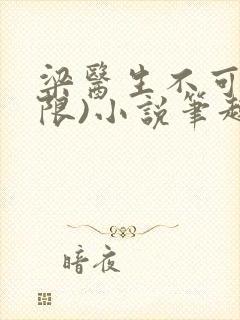 梁醫生不可
限)小說筆趣
暗夜